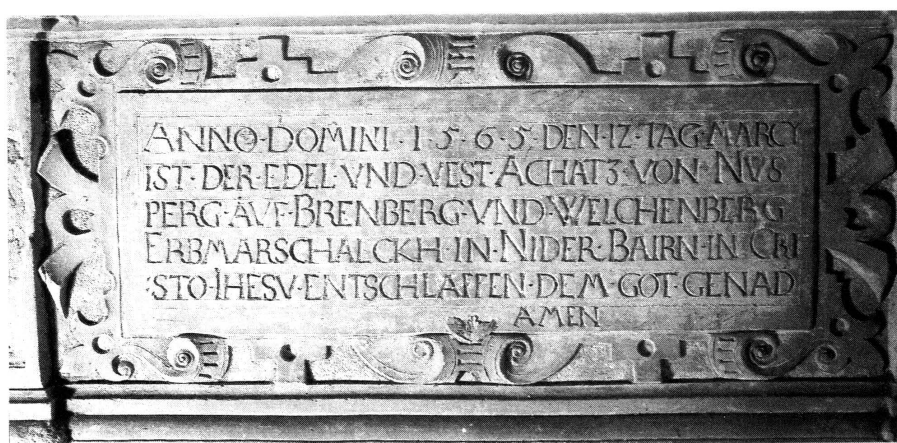 ANNO·DOMINI·1·5·6·5·DEN·12·TAG·MARCY
IST·DER·EDEL·VND·VEST·ACHATZ·VON·NVS
PERG·AVF·BRENBERG·VND·WELCHENBERG
ERBMARSCHALCKH·IN·NIDER·BAIRN·IN·CRI
STO·IHESV·ENTSCHLAFFEN·DEM·GOT·GENAD
AMEN